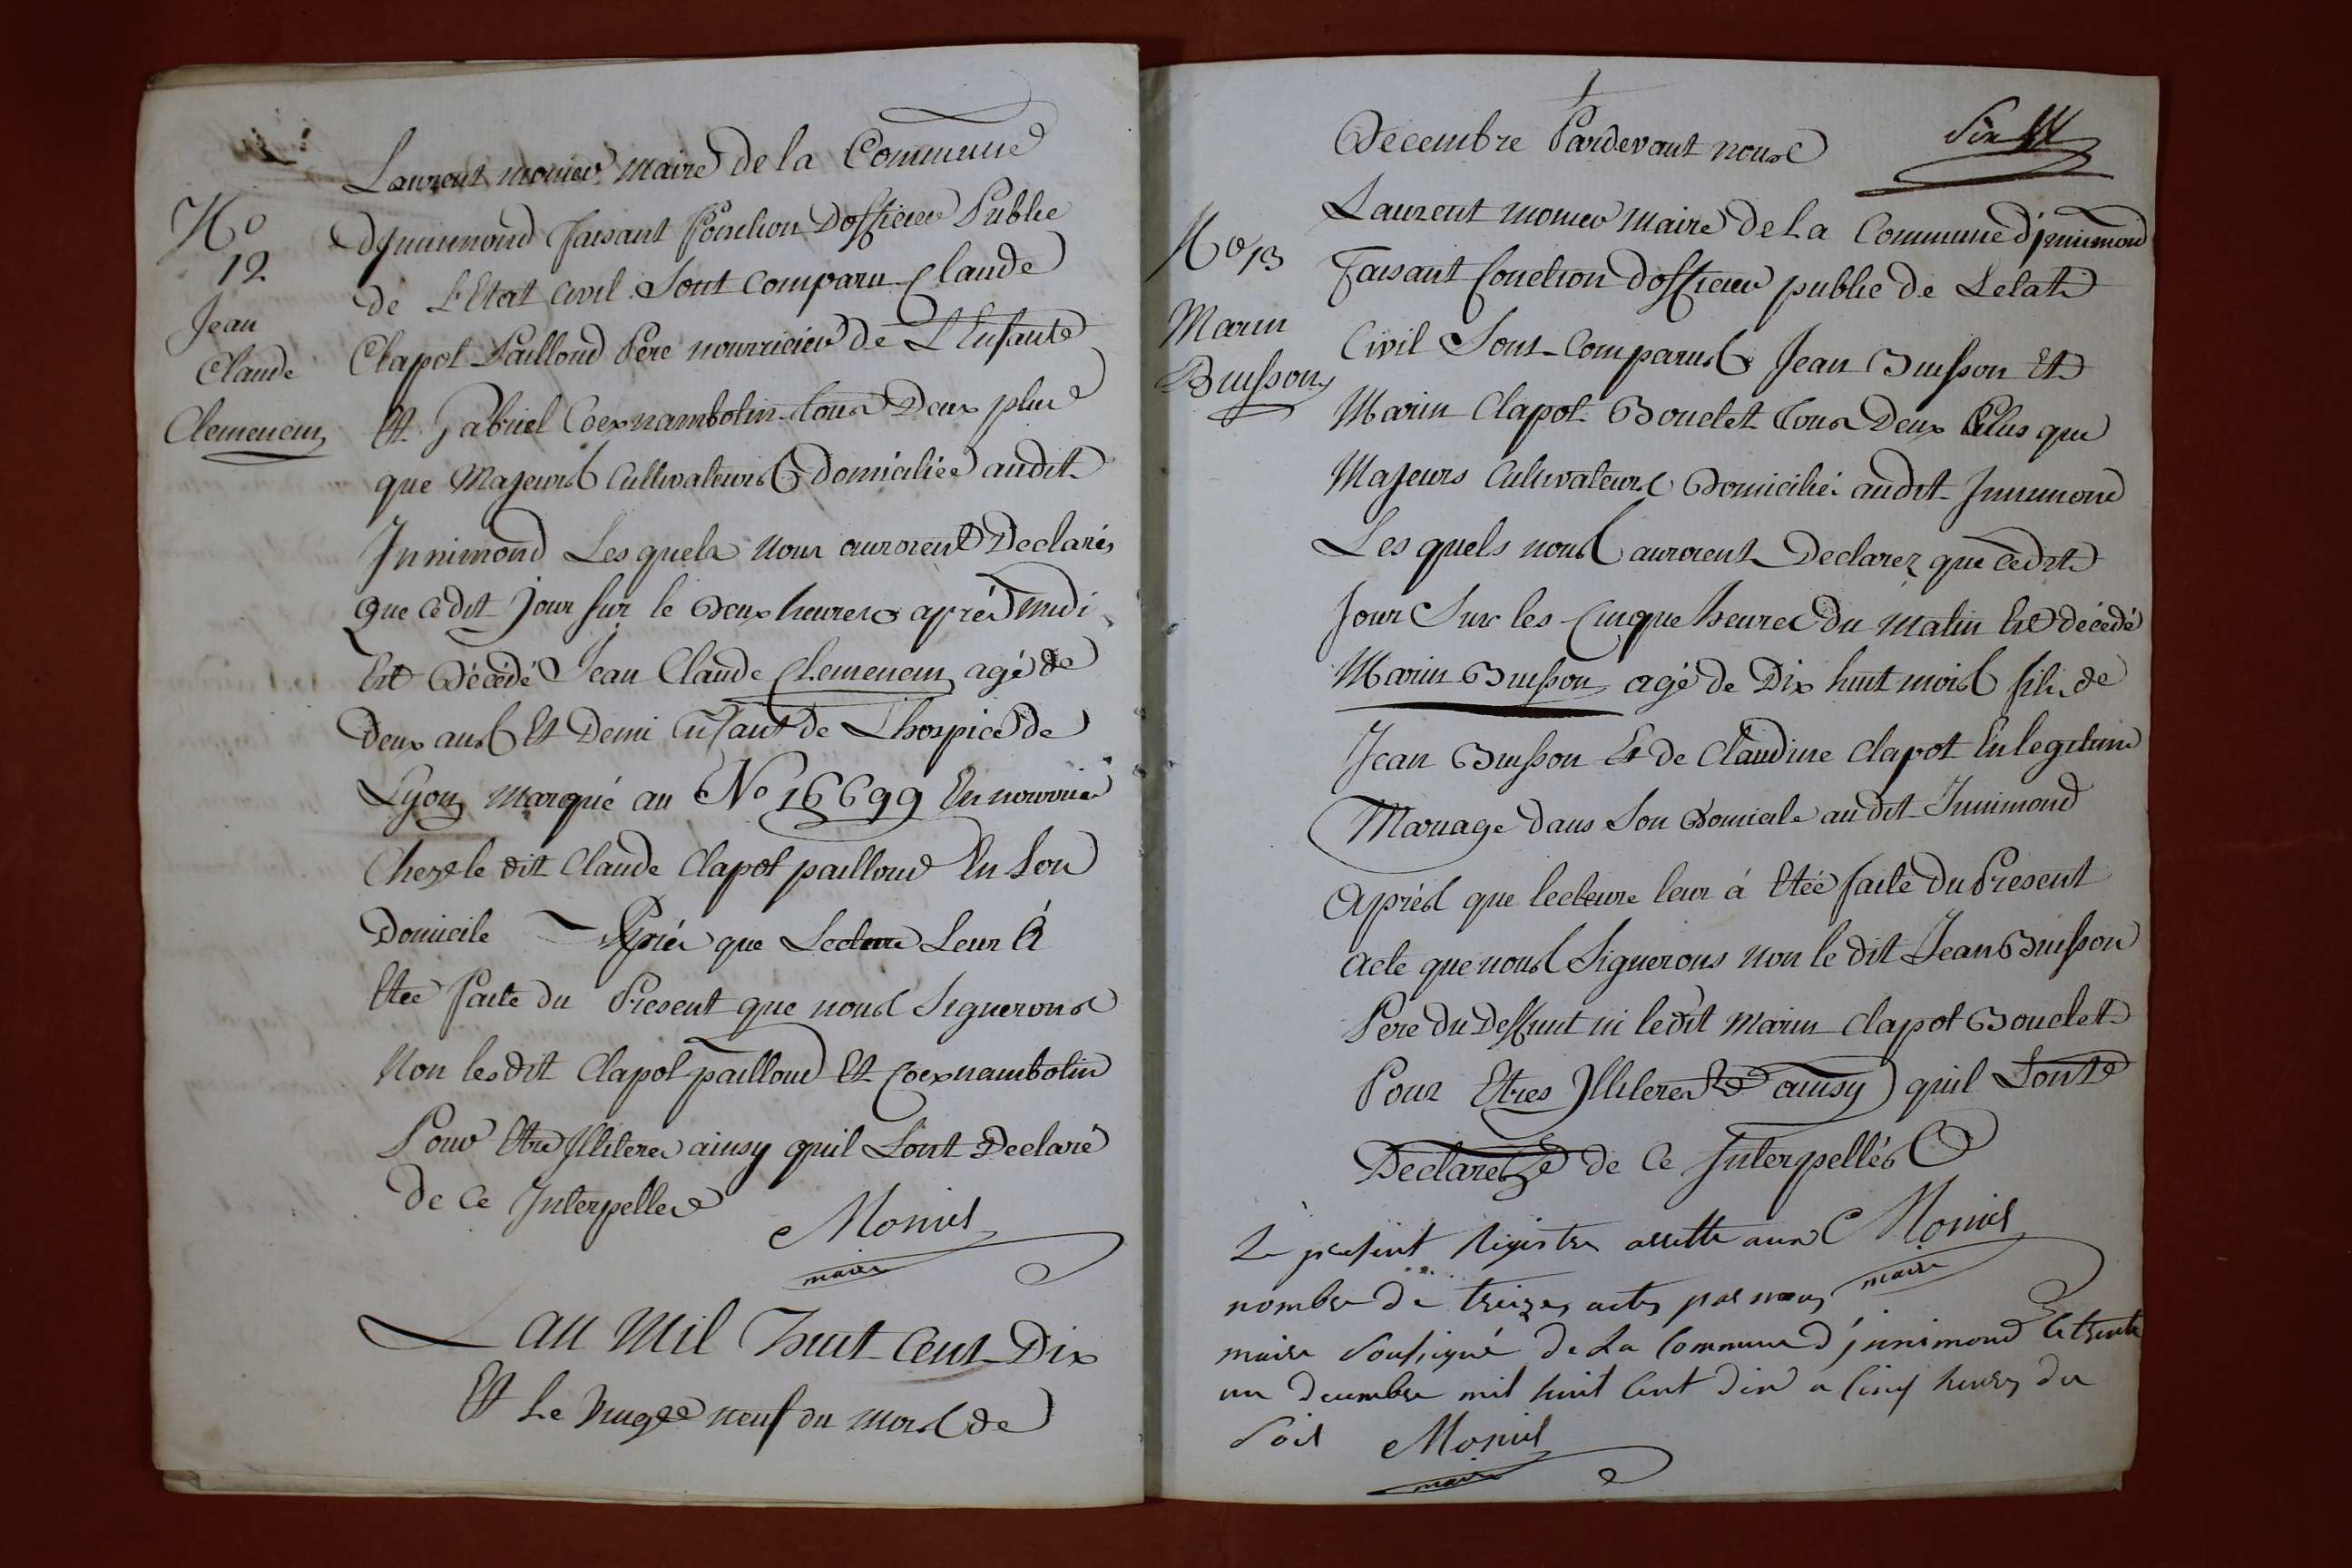 Laurent monier maire de la Commune
No
12
Jean
Claude
Clemencin
dJnnimond faisant fonction Dofficier Public
de L'Etat Civil Sont comparu Claude
Clapot Pailloud Pere nourricier de L'Enfant
Et Gabriel Coexnambotin tous Deux plus
que Majeurs Cultivateurs domiciliée audit
Jnnimond Les quels Nous auroient Declarés
que cedit Jour sur le Deux heures aprés midi
Est Décédé Jean Claude Clemencin agé de
Deux ans Et Demi Enfant de Lhospice de
Lyon Marqué au No 16699 En nourrice
Chez le dit Claude Clapot pailloud En Son
Domicile Aprés que Lecture Leur à
Etée faite du Present que nous Signerons
Non lesdit Clapot pailloud Et Coexnambotin
Pour Etre Jlliteres ainsy quil Sont Declaré
de Ce Interpelles
Monier
maire
L an Mil huit Cent Dix
Et Le Vingt neuf du Mois de
Six
Decembre Pardevant nous
No 13
Marin
Buisson
Laurent monier maire de La Commune d'jnnimond
Faisant fonction dofficier public de Letat
Civil Sont Comparus Jean Buisson Et
Marin Clapot Bouclet tous Deux Plus que
Majeurs Cultivateurs Domicilié audit Jnnimond
Les quels nous auroient Declarez que cedit
Jour Sur les Cinque heures du Matin Est décédé
Marin Buisson agé de Dix huit mois fils de
Jean Buisson Et de Claudine Clapot En legitime
Mariage dans Son Domicile audit Jnnimond
Aprés que lecteure leur á Etée faite du Present
acte que nous Signerons Non le dit Jean Buisson
Pere du Deffunt ni ledit Marin Clapot Bouclet
Pour Etres Jlliteres ainsy quil Sont
Declarez de Ce Interpellés
Monier
maire
Le present Registre arretté au
nombre de treizes actes par nous
maire Soussigné de La Commune d'jnnimond le trente
un decembre mil huit Cent dix a Cinq heures du
Soir Monier
maire